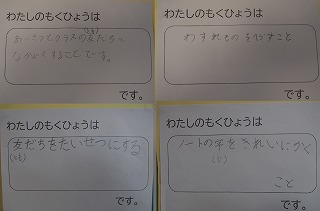 わたしのもくひょうは
クラスの友だちと
なかよくすることです。
です。
わたしのもくひょうは
わすれものをなくすこと
です。
わたしのもくひょうは
友だちをたいせつにする
(とも)
です。
わたしのもくひょうは
ノートの字をきれいにかく
(じ)
こと
です。